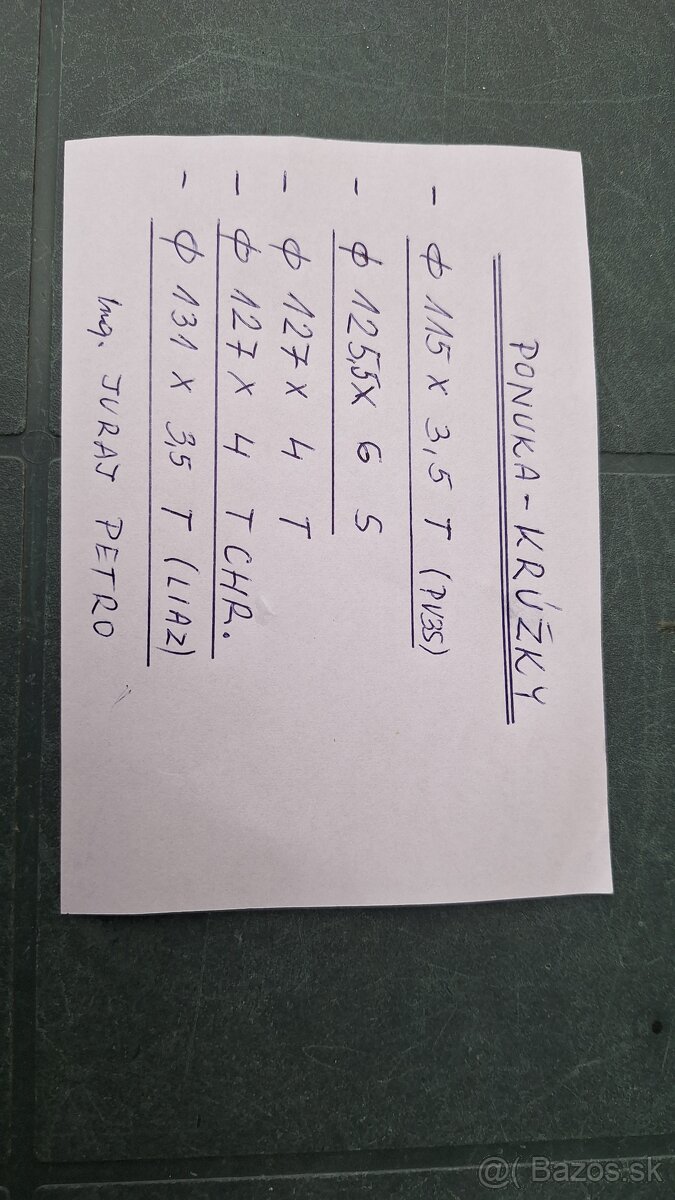 PONUKA - KRÚŽKY
- ϕ 115 x 3,5 T (PV3S)
- ϕ 125,5 x 6 S
- ϕ 127 x 4 T
- ϕ 127 x 4 T CHR.
- ϕ 131 x 3,5 T (LIAZ)
Ing. JURAJ PETRO
@( Bazos.sk